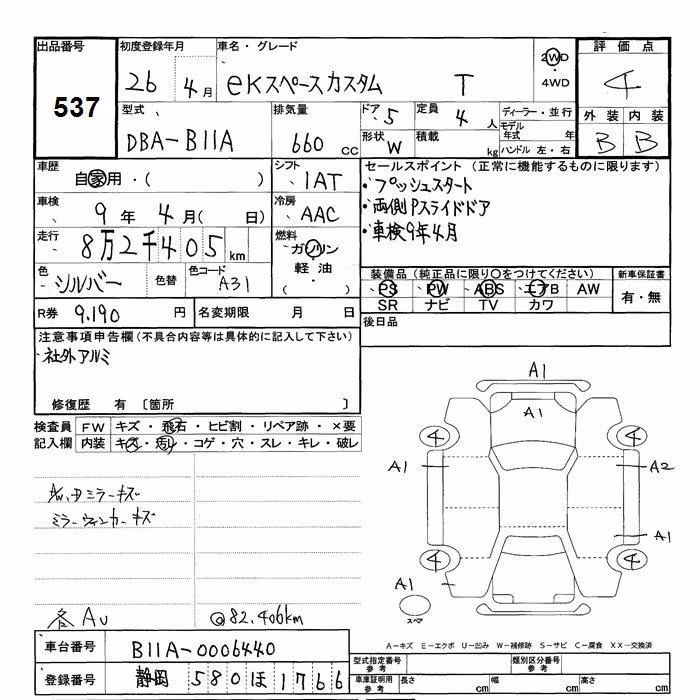 出品番号
537
初度登録年月
26 4月
車名・グレード
eKスペースカスタム T
2WD
・
4WD
評価点
4
外装 内装
B B
型式
DBA-B11A
排気量
660 cc
ドア 5
定員 4 人
形状 W
積載 kg
ディーラー・並行
モデル年式 年
ハンドル 左・右
車歴
自家用・( )
シフト
IAT
車検
9年 4月( 日)
冷房
AAC
走行
8万2千405km
燃料
ガソリン
軽油
( ・ )
色
シルバー
色替
色コード
A31
R券 9.190 円
名変期限 月 日
セールスポイント (正常に機能するものに限ります)
・プッシュスタート
・両側Pスライドドア
・車検9年4月
装備品 (純正品に限り○をつけてください)
PS PW ABS エアB AW
SR ナビ TV カワ
新車保証書
有・無
後日品
注意事項申告欄 (不具合内容等は具体的に記入して下さい)
・社外アルミ
修復歴 有 〔箇所 〕
検査員記入欄
FW キズ・飛石・ヒビ割・リペア跡・×要
内装 キズ・汚レ・コゲ・穴・スレ・キレ・破レ
ミラーキズ
ミラーウィンカーキズ
各AU
@82.406km
A1
A1
4 4
A1 A2
A1
4 4
A1
スペア
A-キズ E-エクボ U-凹み W-補修跡 S-サビ C-腐食 XX-交換済
車台番号 B11A-0006440
登録番号 静岡 580 ほ 1766
型式指定番号 参考
類別区分番号 参考
車庫証明用 参考
長さ cm 幅 cm 高さ cm